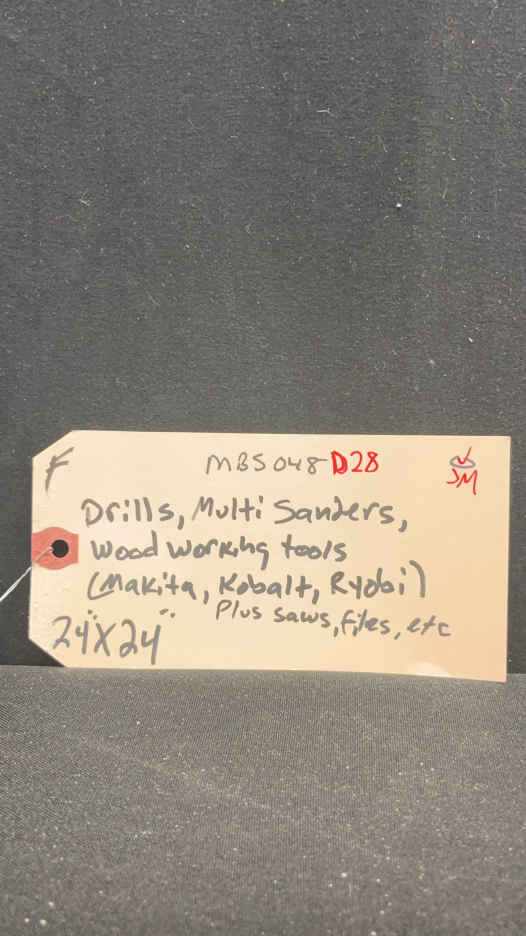 F
MBS048 D28
JM
Drills, Multi Sanders,
Wood working tools
(Makita, Kobalt, Ryobi)
Plus saws, files, etc
24"X24"